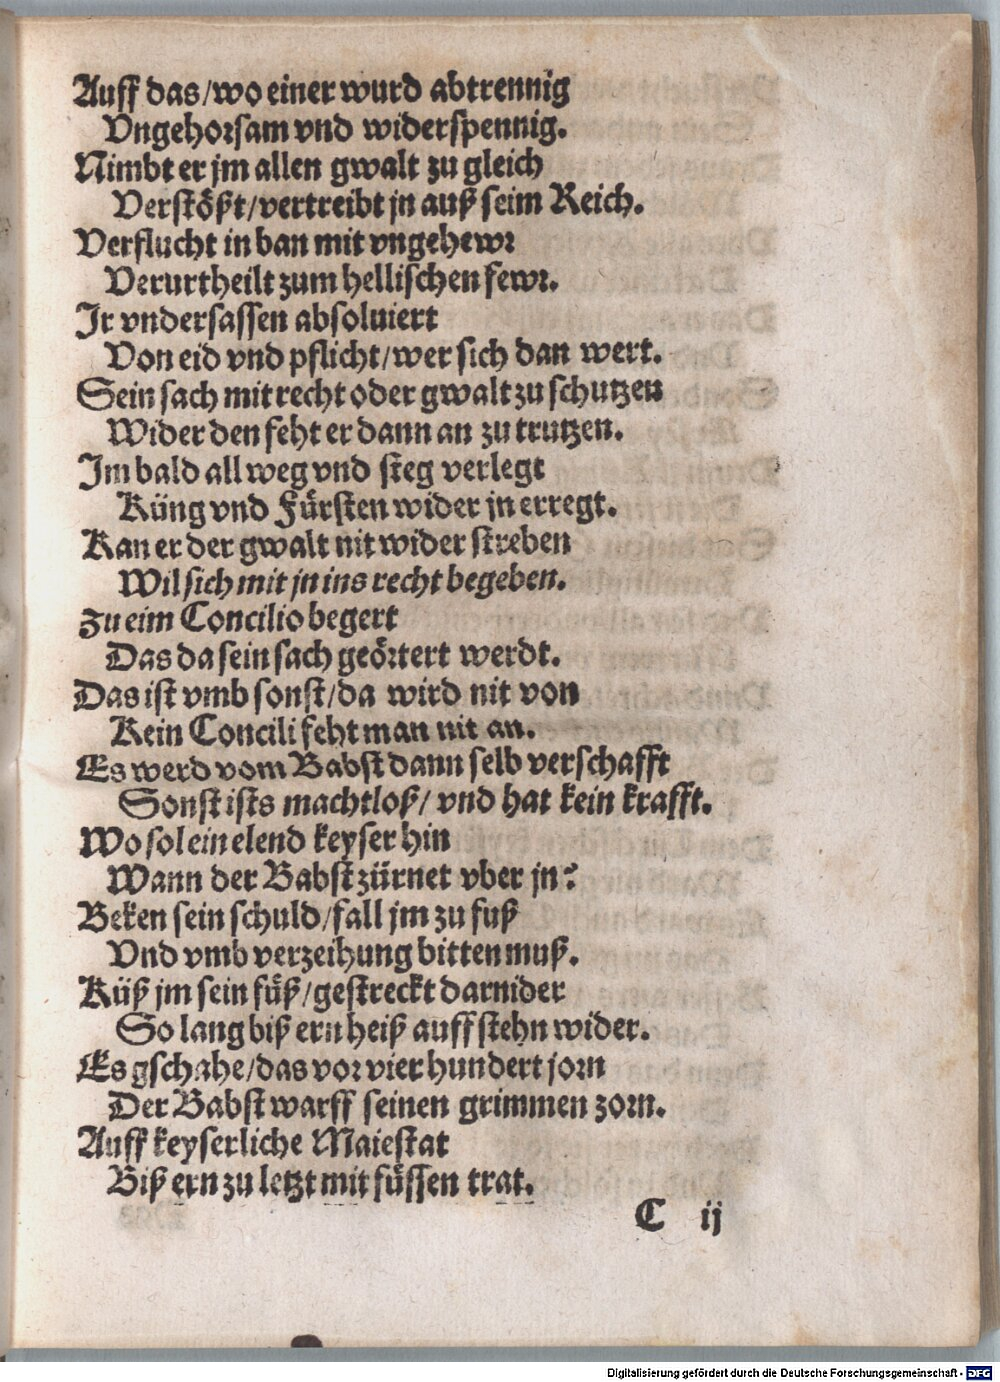 Auff das/wo einer wurd abtrennig
Vngehorsam vnd widerspennig.
Nimbt er jm allen gwalt zu gleich
Verstößt/vertreibt jn auß seim Reich.
Verflucht in ban mit vngehewr
Verurtheilt zum hellischen fewr.
Ir vndersassen absoluiert
Von eid vnd pflicht/wer sich dan wert.
Sein sach mit recht oder gwalt zu schutzen
Wider den feht er dann an zu trutzen.
Im bald all weg vnd steg verlegt
Küng vnd Fürsten wider jn erregt.
Kan er der gwalt nit wider streben
Wil sich mit jn ins recht begeben.
Zu eim Concilio begert
Das da sein sach geörtert werdt.
Das ist vmb sonst/da wird nit von
Kein Concili feht man nit an.
Es werd vom Babst dann selb verschafft
Sonst ists machtloß/ vnd hat kein krafft.
Wo sol ein elend keyser hin
Wann der Babst zürnet vber jn?
Beken sein schuld/fall jm zu fuß
Vnd vmb verzeihung bitten muß.
Küß jm sein füß/gestreckt darnider
So lang biß ern heiß auff stehn wider.
Es gschahe/das vor vier hundert jorn
Der Babst warff seinen grimmen zorn.
Auff keyserliche Maiestat
Biß ern zu letzt mit füssen trat.
C ij
Digitalisierung gefördert durch die Deutsche Forschungsgemeinschaft - DFG